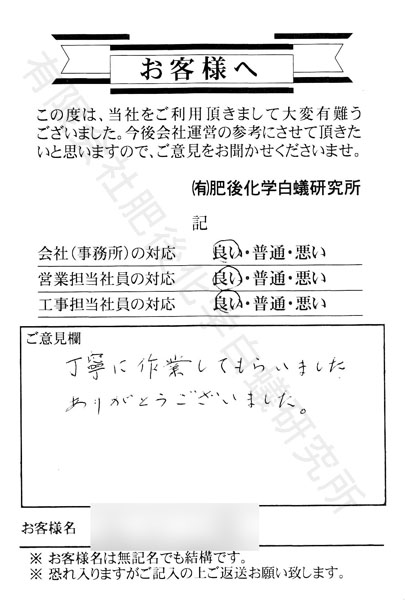 お客様へ
この度は、当社をご利用頂きまして大変有難う
ございました。今後会社運営の参考にさせて頂きた
いと思いますので、ご意見をお聞かせくださいませ。
㈲肥後化学白蟻研究所
記
会社（事務所）の対応 良い・普通・悪い
営業担当社員の対応 良い・普通・悪い
工事担当社員の対応 良い・普通・悪い
ご意見欄
丁寧に作業してもらいました
ありがとうございました。
お客様名
※ お客様名は無記名でも結構です。
※ 恐れ入りますがご記入の上ご返送お願い致します。
有限会社肥後化学白蟻研究所